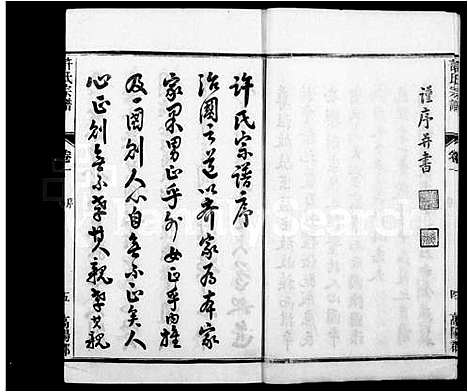 謹序并書
許氏宗譜
卷一
高陽郡
許氏宗譜序
治國之道以齊家為本家
家果男正乎外女正乎內推
及一國則人心自無不正矣人
心正則無不孝其親孝其親
許氏宗譜
卷一
五
高陽郡
FamilySearch